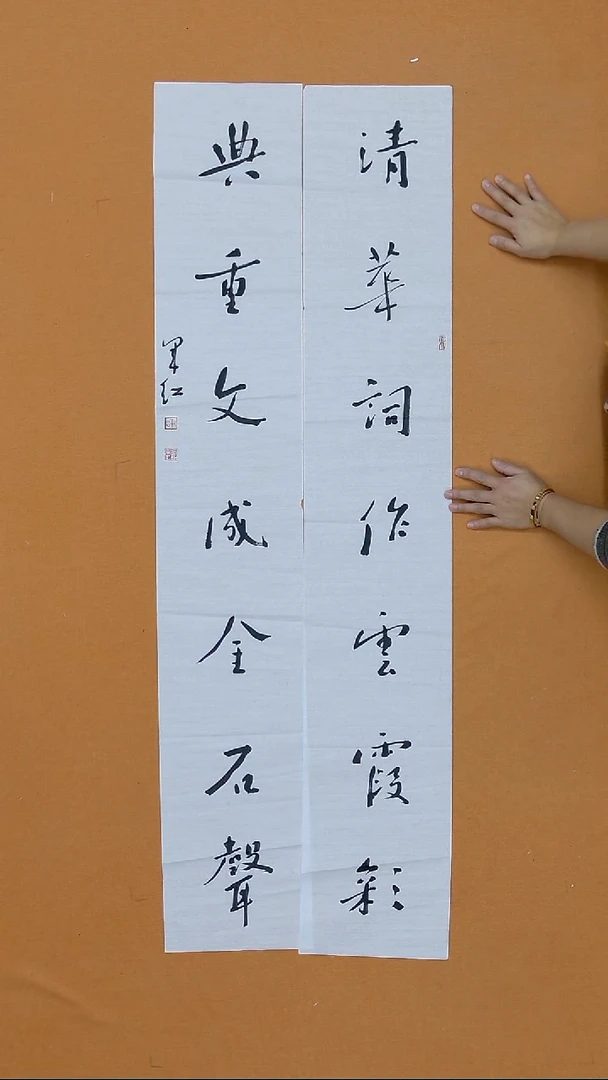 清華詞作雲霞彩
典重文成金石聲